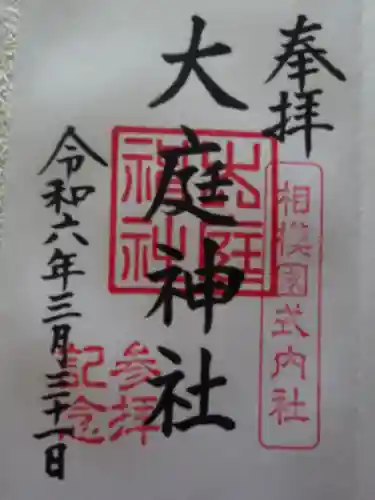 奉拝
相模國式内社
大庭神社
大庭神社
参拝
記念
令和六年三月三十一日